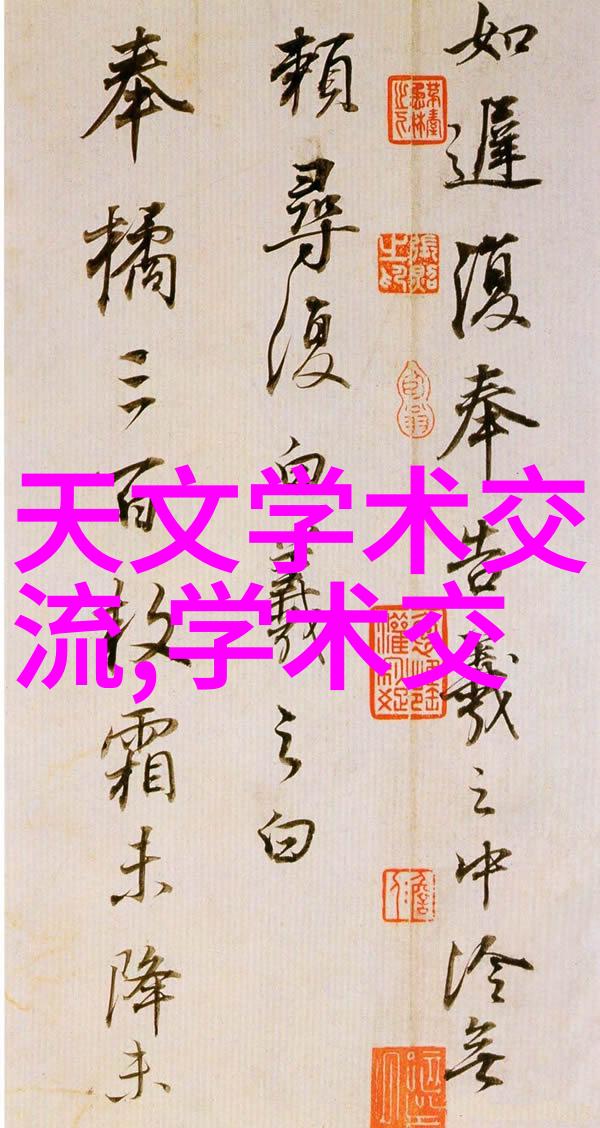 如遲復奉告羲之中冷無
賴尋復白羲之白
奉橘三百枚霜未降未
天文学术交
流,学术交